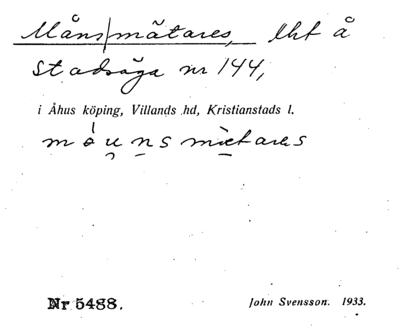 Måns|mätares, lht å
Stadsäga nr 144,
i Åhus köping, Villands hd, Kristianstads l.
Nr 5488.
John Svensson. 1933.